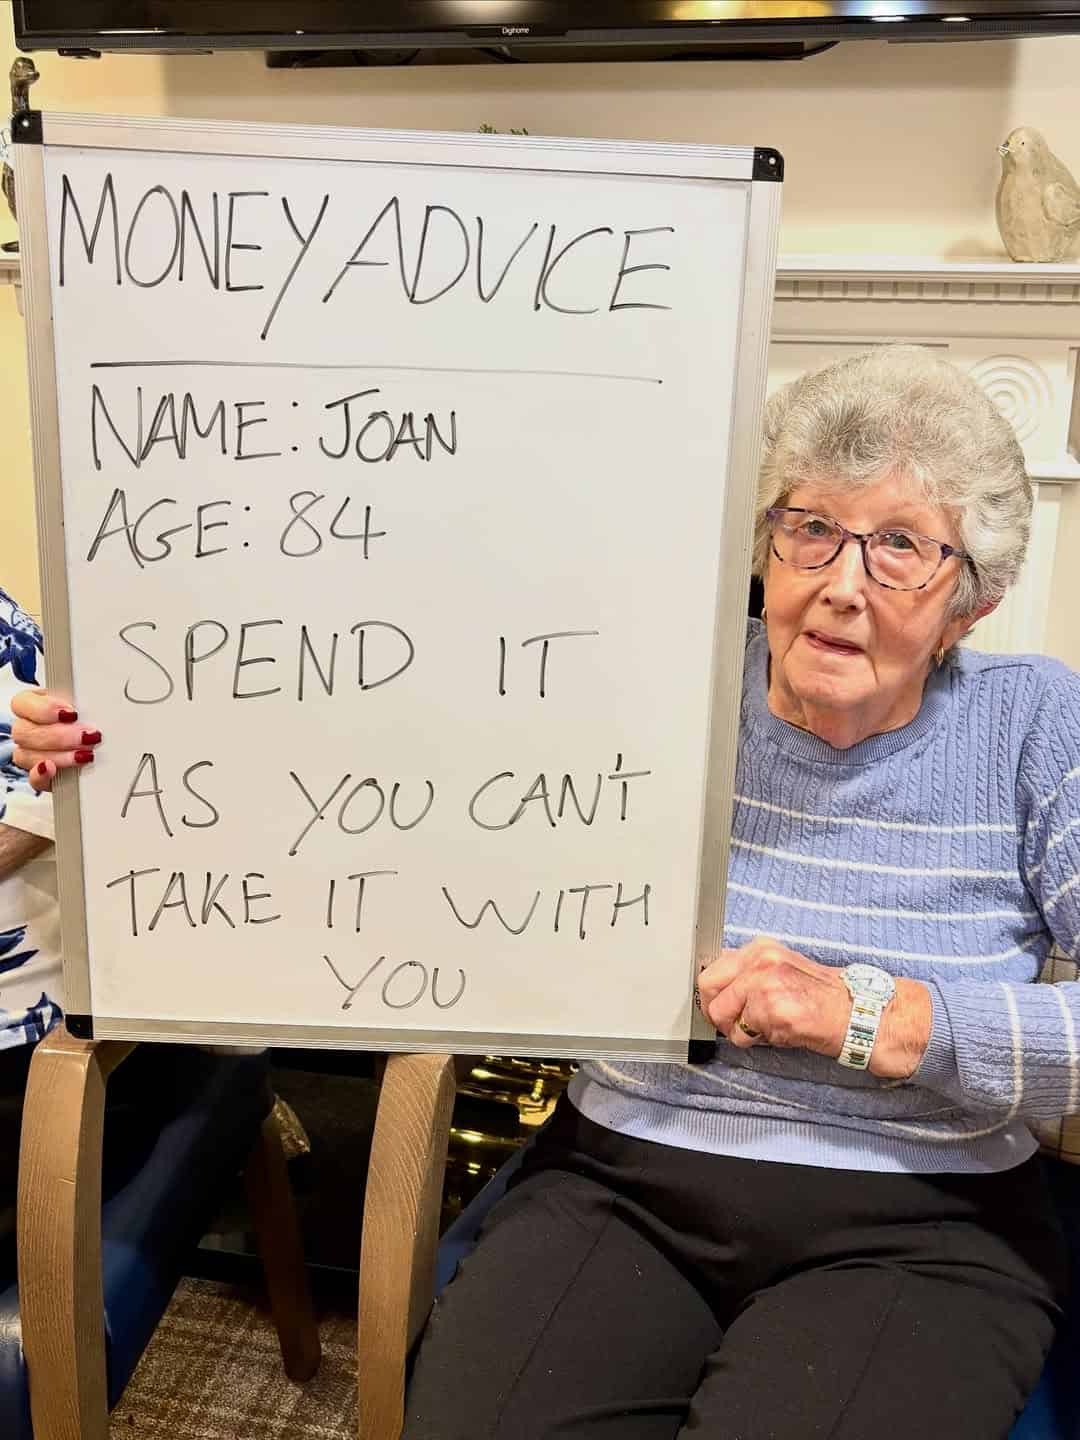 Digihome
MONEY ADVICE
NAME: JOAN
AGE: 84
SPEND IT
AS YOU CAN'T
TAKE IT WITH
YOU